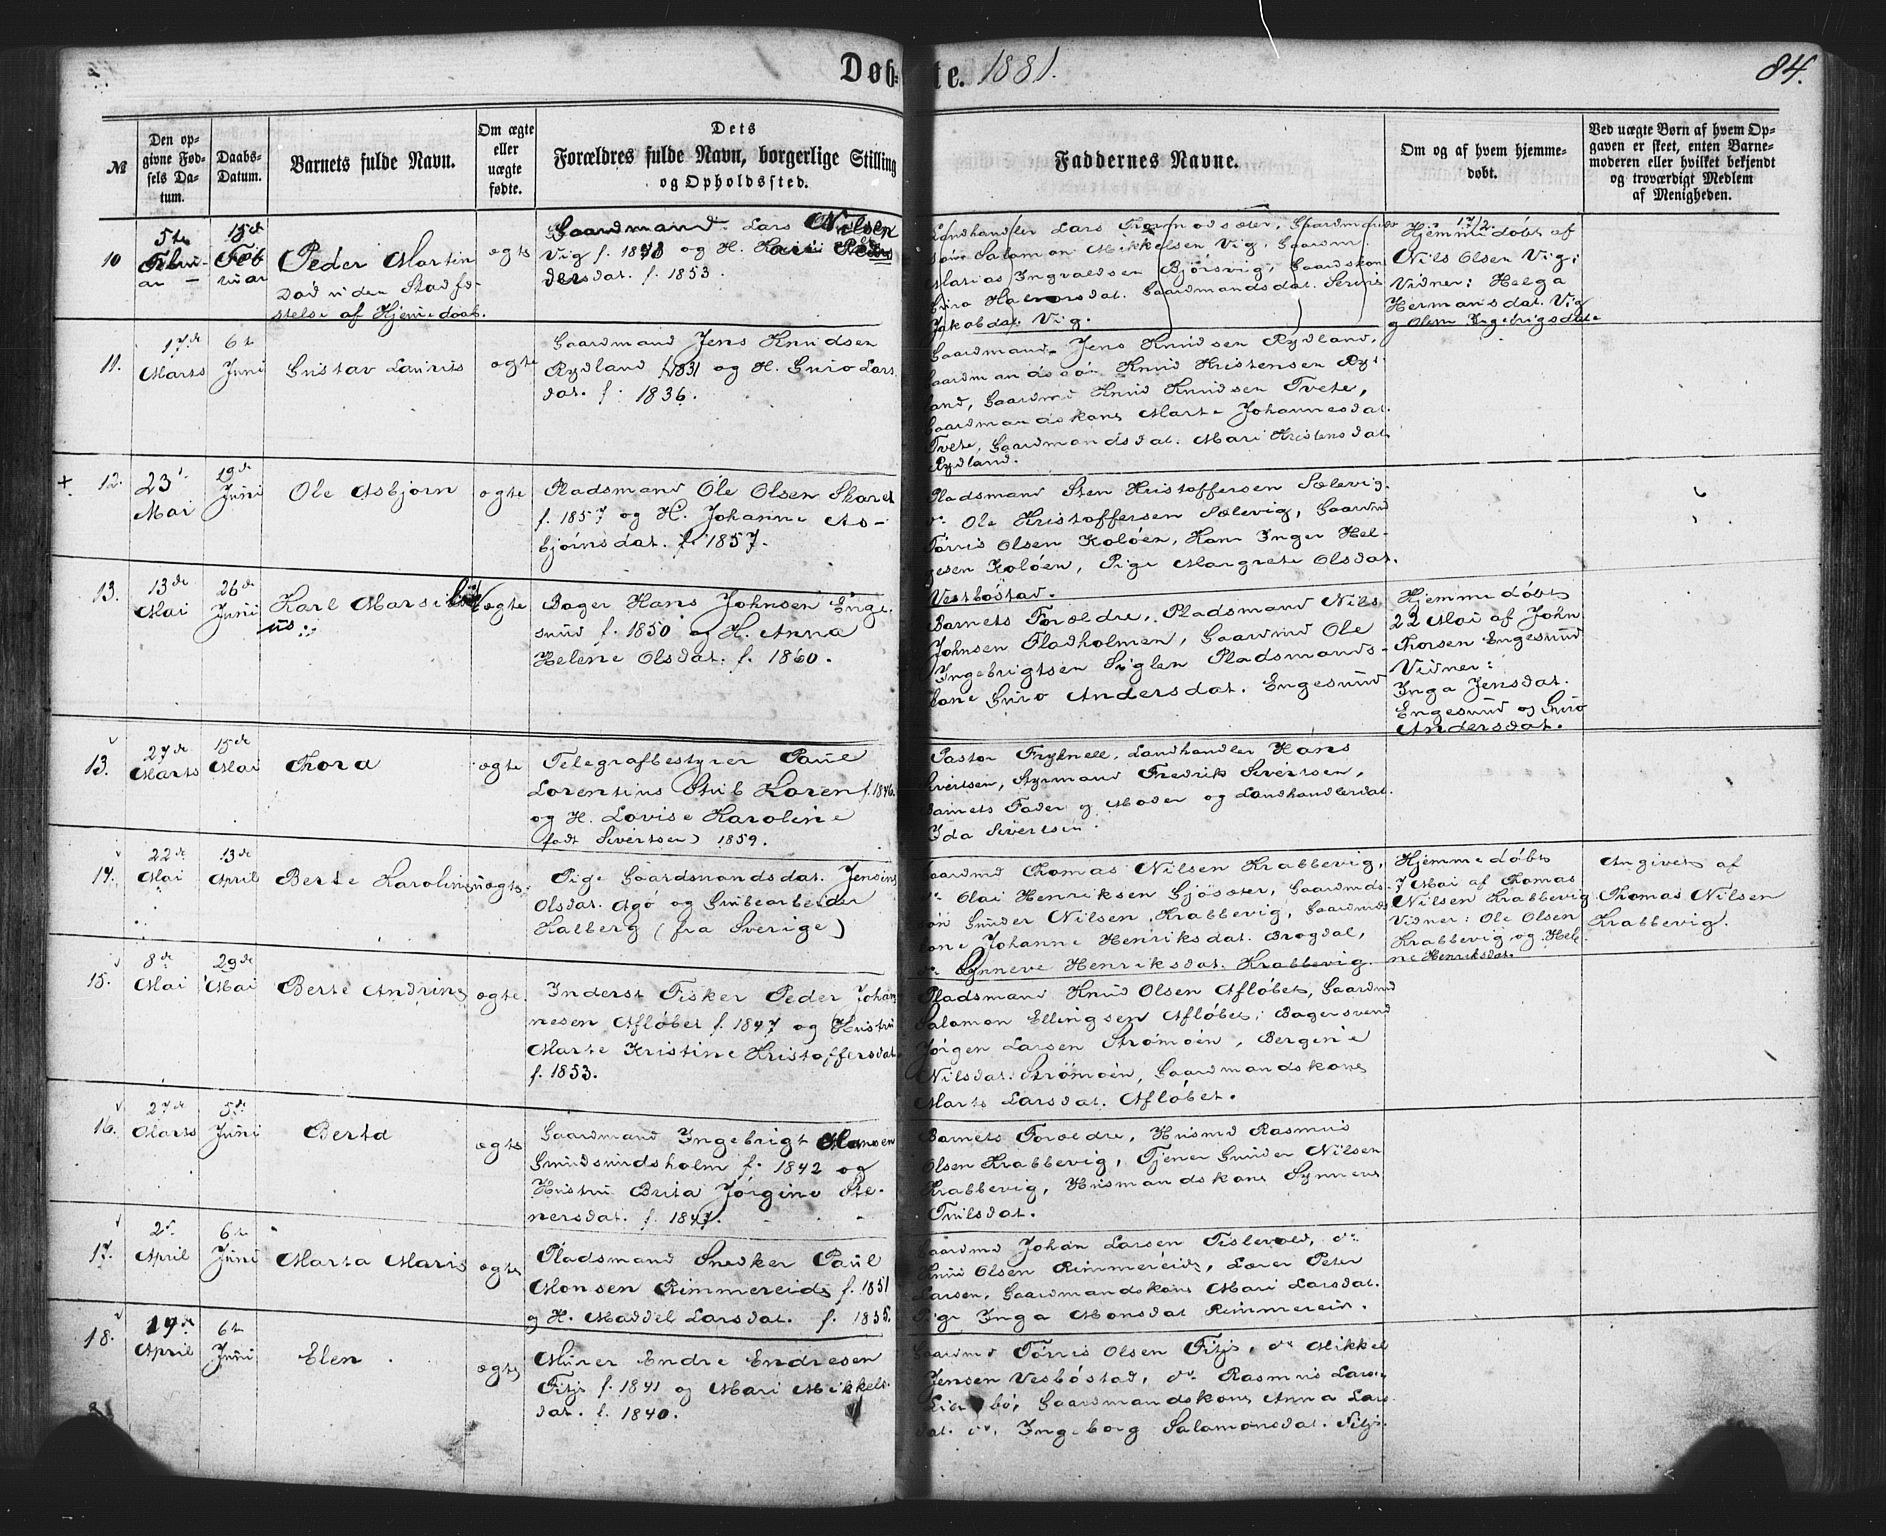 Døb=te. 1881.
84.
№
Den op=
givne Fød=
sels Da=
tum.
Daabs=
Datum.
Barnets fulde Navn.
Om ægte
eller
uægte
fødte.
Dets
Forældres fulde Navn, borgerlige Stilling
og Opholdssted.
Faddernes Navne.
Om og af hvem hjemme=
døbt.
Ved uægte Børn af hvem Op=
gaven er skeet, enten Barne=
moderen eller hvilket bekjendt
og troværdigt Medlem
af Menigheden.
10
5te
Febru-
ar
Feb
ruar
Peder Martin
Død uden Stadfæ-
stelse af Hjemedaab.
ægte
Gaardmand Lars Nielsen
Vig f. og H. Kari Peder
dersdat. f. 1853.
Landhandler Lars
søn Salomon Mikkelsen Vig, Gaardm.
Matias Ingvaldsen Bjørsvig, Gaardskone
Guro Halvorsdat. Gaardmandsdat. Serine
Jakobdat. Vig.
17/2
Hjemmedøbt af
Nils Olsen Vig,
Vidner: Helga
Hermansdat. Vig
og Olina Ingebrigsdat.
11.
17de
Marts
6te
Juni
Gustav Laurits
ægte
Gaardmand Jens Knudsen
Rydland f. 1831 og H. Guro Lars
dat. f. 1836.
Gaardmand Jens Knudsen Rydland,
Gaardmandssøn Knud Kristensen Ryd
land, Gaardmd Knud Knudsen Tvete,
Gaardmandskone Marte Johannesdat.
Tvete, Gaardmandsdat. Mari Kristensdat
Rydland.
+ 12.
23'
Mai
19de
Juni
Ole Asbjørn
ægte
Pladsmand Ole Olsen Skaret
f. 1857 og H. Johanne As-
bjørnsdat. f. 1857.
Pladsmand Sten Kristoffersen Sælevig,
do Ole Kristoffersen Sælevig, Gaardmd
Tørris Olsen Koløen, Kone Inger Hel-
gesen Koløen, Pige Margrete Olsdat.
Vestbøstad.
13.
13de
Mai
26de
Juni
Karl Marseli
us.
ægte
Bager Hans Johnsen Enge
sund f. 1850 og H. Anna
Helene Olsdat. f. 1860.
Barnets Forældre, Pladsmand Nils
Johnsen Fladholmen, Gaardmd Ole
Ingebrigtsen Siglen Pladsmands-
kone Guro Andersdat. Engesund
Hjemmedøbt
22 Mai af John
Thorsen Engesund
Vidner:
Inga Jensdat.
Engesund og Guro
Andersdat.
13.
27de
Marts
15de
Mai
Thora
ægte
Telegrafbestyrer Paul
Lorentius Stub Koren f. 1846.
og H. Lovise Karoline
født Sivertsen) 1859.
Pastor Fryknell, Landhandler Hans
Sivertsen, Styrmand Fredrik Sivertsen,
Barnets Fader og Moder og Landhandlerdat.
Ida Sivertsen.
14.
22de
Mai
13de
April
Berte Karoline
uægte
Pige Gaardmandsdat. Jensine
Olsdat. Agø og Grubearbeider
Kalberg (fra Sverige)
Gaardmd Thomas Nilsen Krabbevig,
do Olai Henriksen Gjøsæter, Gaardmds-
søn Gunder Nilsen Krabbevig, Gaardmds
kone Johanne Henriksdat. Brogdal,
do Synneve Henriksdat. Krabbevig.
Hjemmedøbt
7 Mai af Thomas
Nilsen Krabbevig
Vidner: Ole Olsen
Krabbevig og Hele
ne Henriksdat.
Angivet af
Thomas Nilsen
Krabbevig.
15.
8de
Mai
29de
Mai
Berte Andrine
ægte.
Inderst Fisker Peder Johan
nesen Afløbet f. 1847 og Hustru
Marte Kristine Kristoffersdat.
f. 1853.
Pladsmand Knud Olsen Afløbet, Gaardmd
Salamon Ellingsen Afløbet, Bagersvend
Jørgen Larsen Strømøen, Bergine
Nilsdat. Strømøen, Gaardmandskone
Marte Larsdat. Afløbet.
16.
27de
Marts
5te
Juni
Berta
ægte
Gaardmand Ingebrigt Hansen
Gundsundsholm f. 1842 og
Hustru Brita Jørgine Ste-
nersdat. f. 1847.
Barnets Forældre, Husmd Rasmus
Olsen Krabbevig, Tjener Gunder Nilsen
Krabbevig, Husmandskone Synneve
Truilsdat.
17.
April
6te
Juni
Marta Marie
ægte
Pladsmand Snedker Paul
Monsen Rimmereide f. 1851
og H. Maddel Larsdat. f. 1855.
Gaardmd Johan Larsen Tislevold, do
Knud Olsen Rimmereide, Lærer Peter
Larsen, Gaardmandskone Mari Larsdat.
Pige Inga Monsdat Rimmereid.
18.
19de
April
6te
Juni
Elen
ægte
Murer Endre Endresen
Fitje f. 1841 og Mari Mikkels
dat. f. 1840.
Gaardmd Tørris Olsen Fitje, do Mikkel
Jensen Vesbøstad, do Rasmus Larsen
Gaardmandskone Anna Lars
dat. do, Ingeborg Salamonsdat. Fitje.